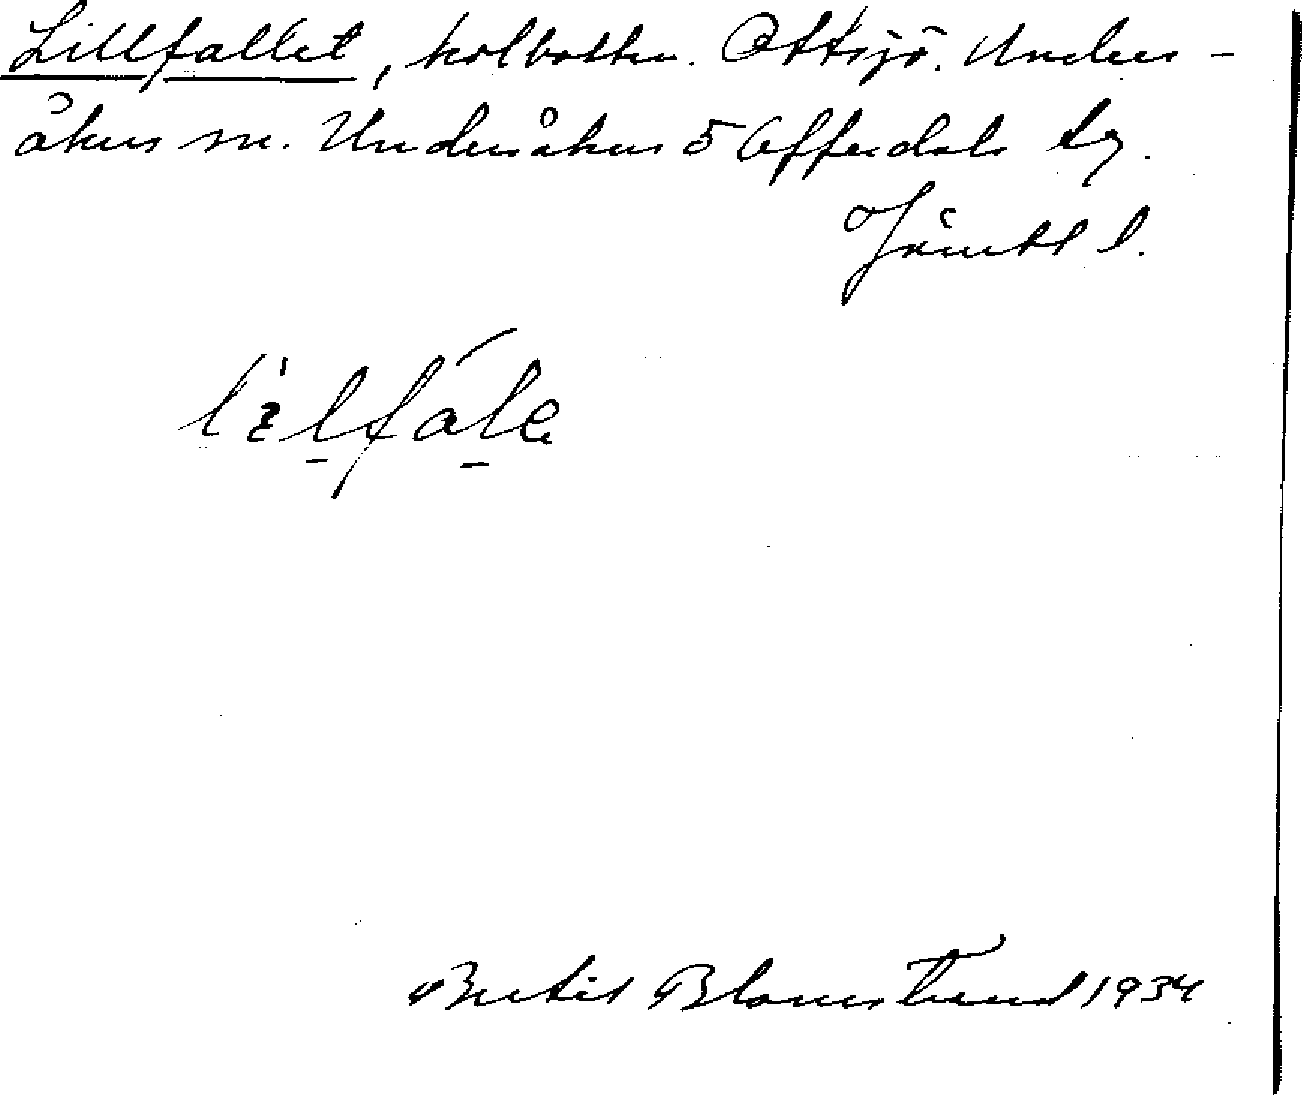 Lillfallet, kolbotten. Ottsjö. Unders-
åkers sn. Undersåkers o Offerdals tg.
Jämtl l.
Bertil Blomstrand 1934